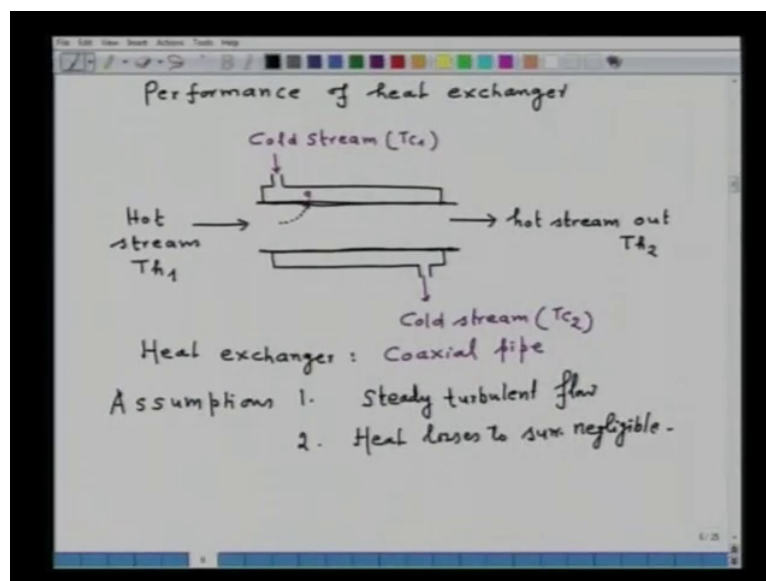 File Edit View Insert Actions Tools Help
Performance of heat exchanger
Cold stream (Tc₁)
q
Hot stream Th₁
hot stream out Th₂
Cold stream (Tc₂)
Heat exchanger : Coaxial pipe
Assumptions 1. Steady turbulent flow
2. Heat losses to surr. negligible.
6/25